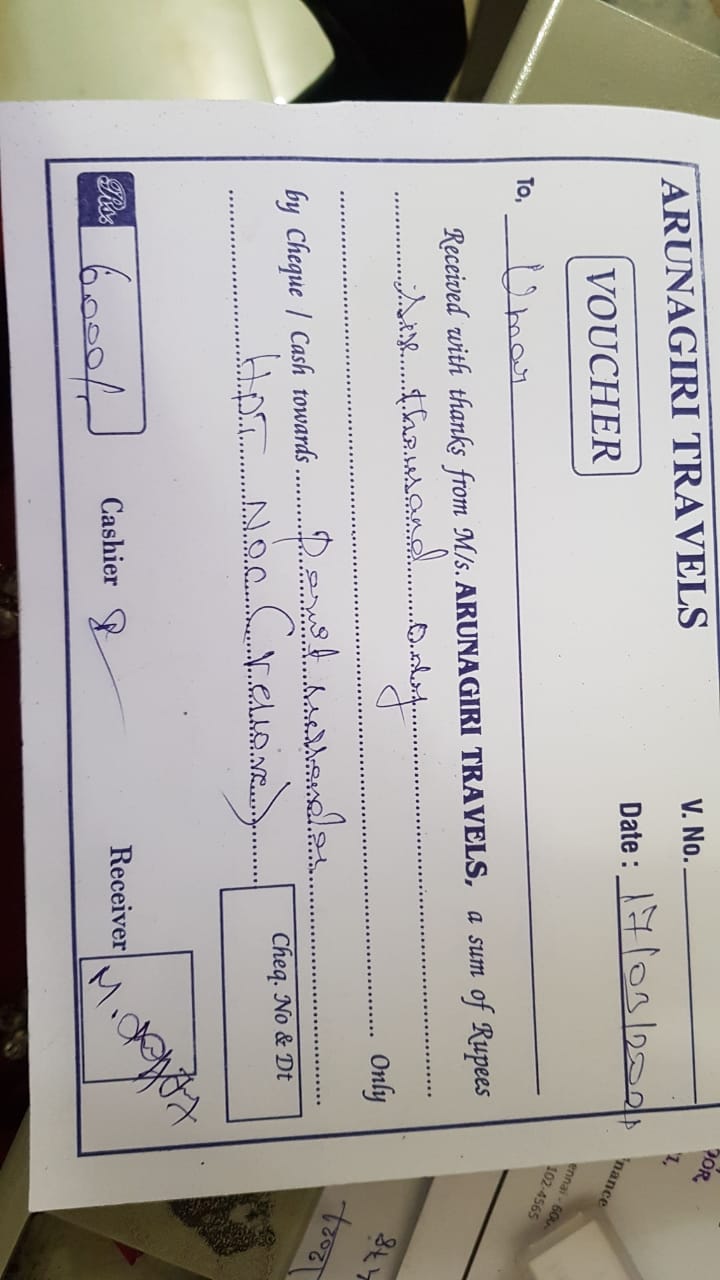 ARUNAGIRI TRAVELS
V. No.
VOUCHER
Date : 17/03/202
To, Umar
Received with thanks from M/s. ARUNAGIRI TRAVELS, a sum of Rupees
Six thousand only
Only
by Cheque / Cash towards Permit surrender
HPT NOC (Vellore)
Cheq. No & Dt
Rs. 6000/-
Cashier
Receiver M.
nance
ennai - 60
102-4565
2021